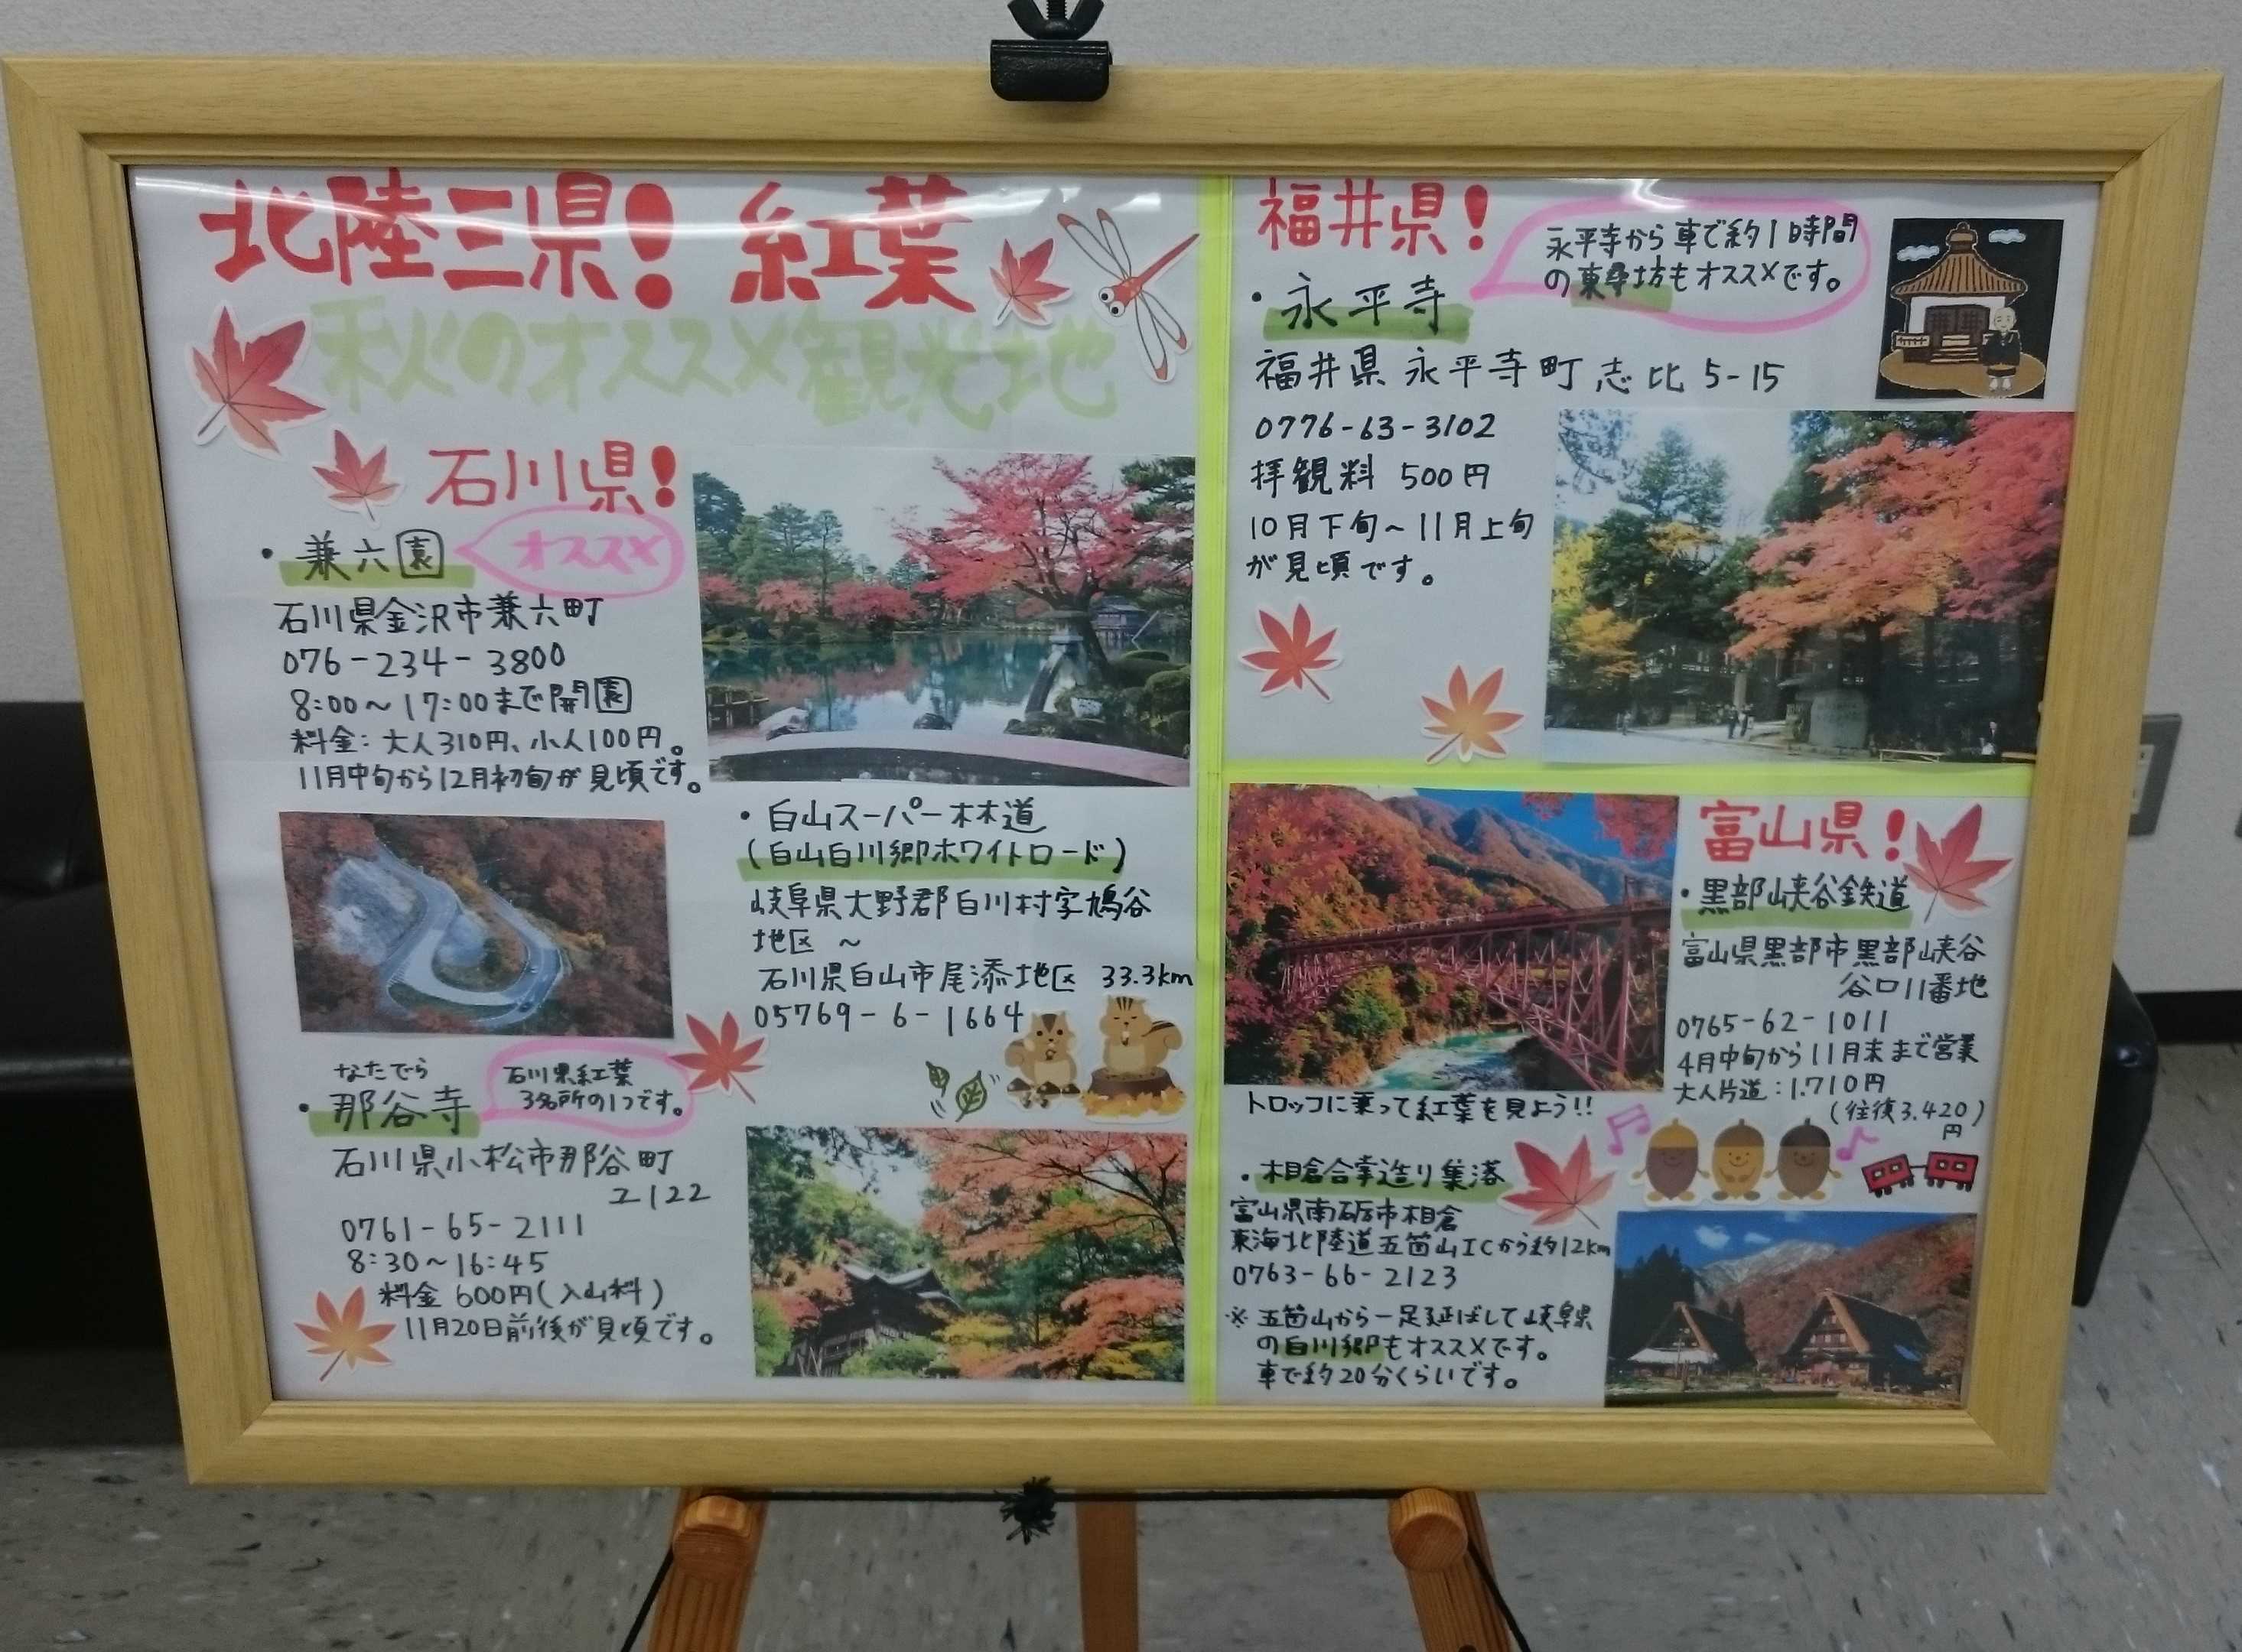 北陸三県!紅葉
秋のオススメ観光地
石川県!
・兼六園
オススメ
石川県金沢市兼六町
076-234-3800
8:00～17:00まで開園
料金:大人310円、小人100円。
11月中旬から12月初旬が見頃です。
・白山スーパー林道
(白山白川郷ホワイトロード)
岐阜県大野郡白川村字鳩谷
地区 ～
石川県白山市尾添地区 33.3km
05769-6-1664
なたでら
・那谷寺
石川県紅葉
3名所の1つです。
石川県小松市那谷町
ユ122
0761-65-2111
8:30～16:45
料金 600円(入山料)
11月20日前後が見頃です。
福井県!
・永平寺
永平寺から車で約1時間
の東尋坊もオススメです。
福井県永平寺町志比5-15
0776-63-3102
拝観料 500円
10月下旬～11月上旬
が見頃です。
富山県!
・黒部峡谷鉄道
富山県黒部市黒部峡谷
谷口11番地
0765-62-1011
4月中旬から11月末まで営業
大人片道:1.710円
(往復3.420円)
トロッコに乗って紅葉を見よう!!
・相倉合掌造り集落
富山県南砺市相倉
東海北陸道五箇山ICから約12km
0763-66-2123
※五箇山から一足延ばして岐阜県
の白川郷もオススメです。
車で約20分くらいです。